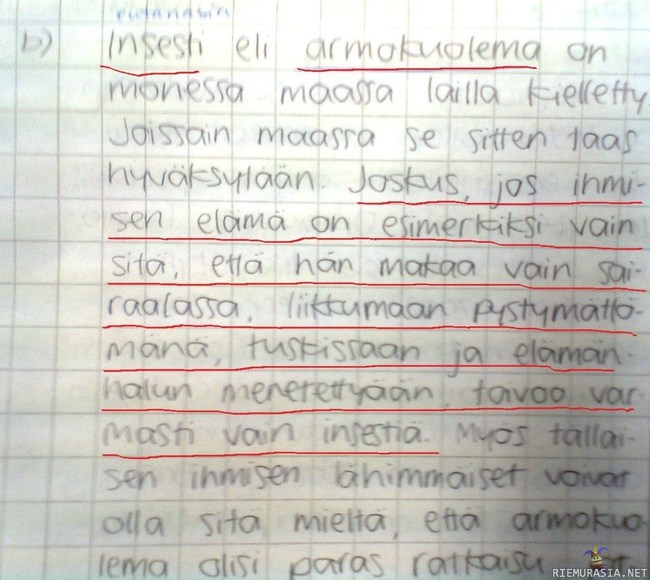 eutanasia
b) Insesti eli armokuolema on
monessa maassa lailla kielletty
Joissain maassa se sitten taas
hyväksylään. Joskus, jos ihmi-
sen elämä on esimerkiksi vain
sitä, että hän makaa vain sai-
raalassa, liikkumaan pystymättö-
mänä, tuskissaan ja elämän-
halun menetettyään, toivoo var-
masti vain insestiä. Myös tällai-
sen ihmisen lähimmäiset voivat
olla sitä mieltä, että armokuo-
lema olisi paras ratkaisu
RIEMURASIA.NET